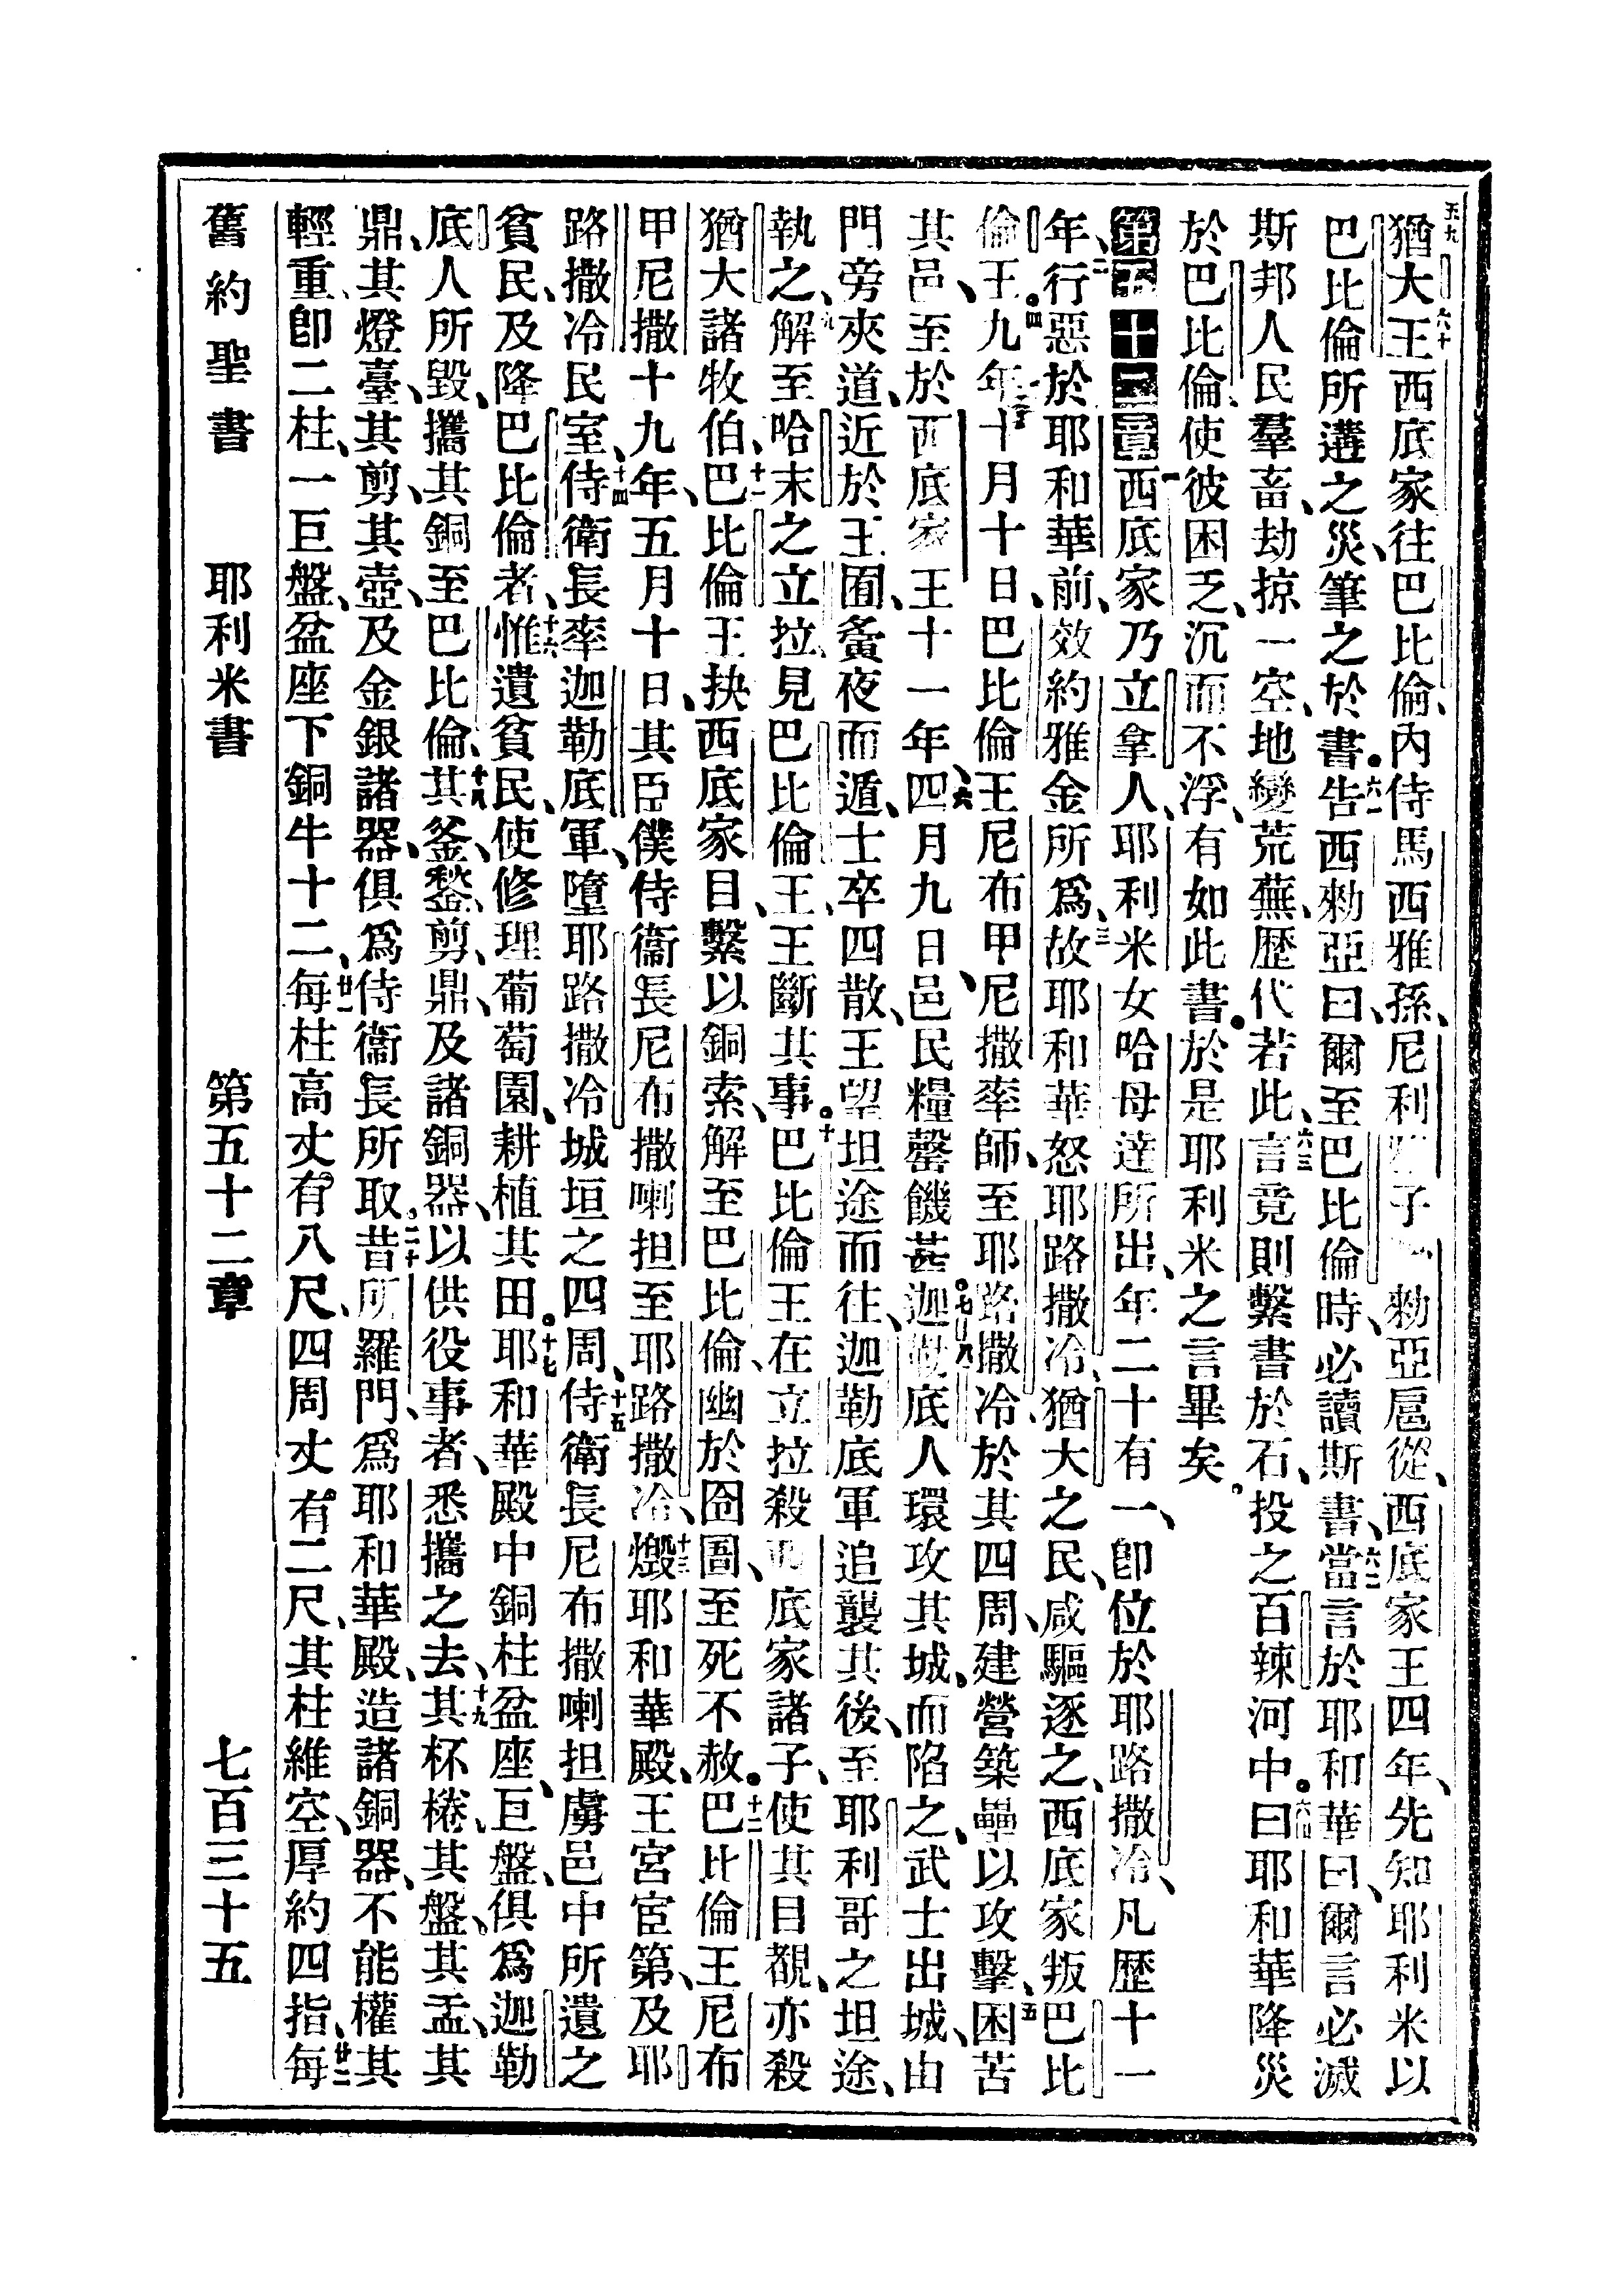 五九猶大王西底家往巴比倫、內侍馬西雅孫、尼利子勑亞扈從、西底家王四年、先知耶利米以
六十巴比倫所遘之災、筆之於書。六一告西勑亞曰、爾至巴比倫時、必讀斯書、六二當言於耶和華曰、爾言必滅
斯邦人民羣畜、劫掠一空、地變荒蕪、歷代若此、六三言竟則繫書於石、投之百辣河中。六四曰耶和華降災
於巴比倫、使彼困乏、沉而不浮、有如此書。於是耶利米之言畢矣。
第五十二章一西底家乃立拿人、耶利米女哈母達所出、年二十有一、卽位於耶路撒冷、凡歷十一
年、二行惡於耶和華前、效約雅金所爲、三故耶和華怒耶路撒冷、猶大之民、咸驅逐之、西底家叛巴比
倫王。四九年十月十日、巴比倫王尼布甲尼撒率師、至耶路撒冷、於其四周、建營築壘、以攻擊、五困苦
其邑、至於西底家王十一年、六四月九日、邑民糧罄饑甚。七迦勒底人環攻其城、而陷之、武士出城、由
門旁夾道、近於王囿、夤夜而遁、士卒四散、王望坦途而往、八迦勒底軍追襲其後、至耶利哥之坦途、
執之、九解至哈末之立拉、見巴比倫王、王斷其事。十巴比倫王在立拉殺西底家諸子、使其目覩、亦殺
猶大諸牧伯、十一巴比倫王抉西底家目、繫以銅索、解至巴比倫、幽於囹圄、至死不赦。十二巴比倫王尼布
甲尼撒十九年、五月十日、其臣僕侍衞長尼布撒喇担至耶路撒冷、十三燬耶和華殿、王宮宦第、及耶
路撒冷民室、十四侍衞長率迦勒底軍、墮耶路撒冷城垣之四周、十五侍衞長尼布撒喇担虜邑中所遺之
貧民、及降巴比倫者、十六惟遺貧民、使修理葡萄園、耕植其田。十七耶和華殿中銅柱盆座、巨盤、俱爲迦勒
底人所毀、攜其銅至巴比倫、十八其釜鍫、剪、鼎、及諸銅器、以供役事者、悉攜之去、十九其杯棬、其盤、其盂、其
鼎、其燈臺、其剪、其壺、及金銀諸器、俱爲侍衞長所取。二十昔所羅門、爲耶和華殿、造諸銅器、不能權其
輕重、卽二柱、一巨盤、盆座下銅牛十二、廿一每柱高丈有八尺、四周丈有二尺、其柱維空、厚約四指、廿二每
舊約聖書　耶利米書　第五十二章　七百三十五